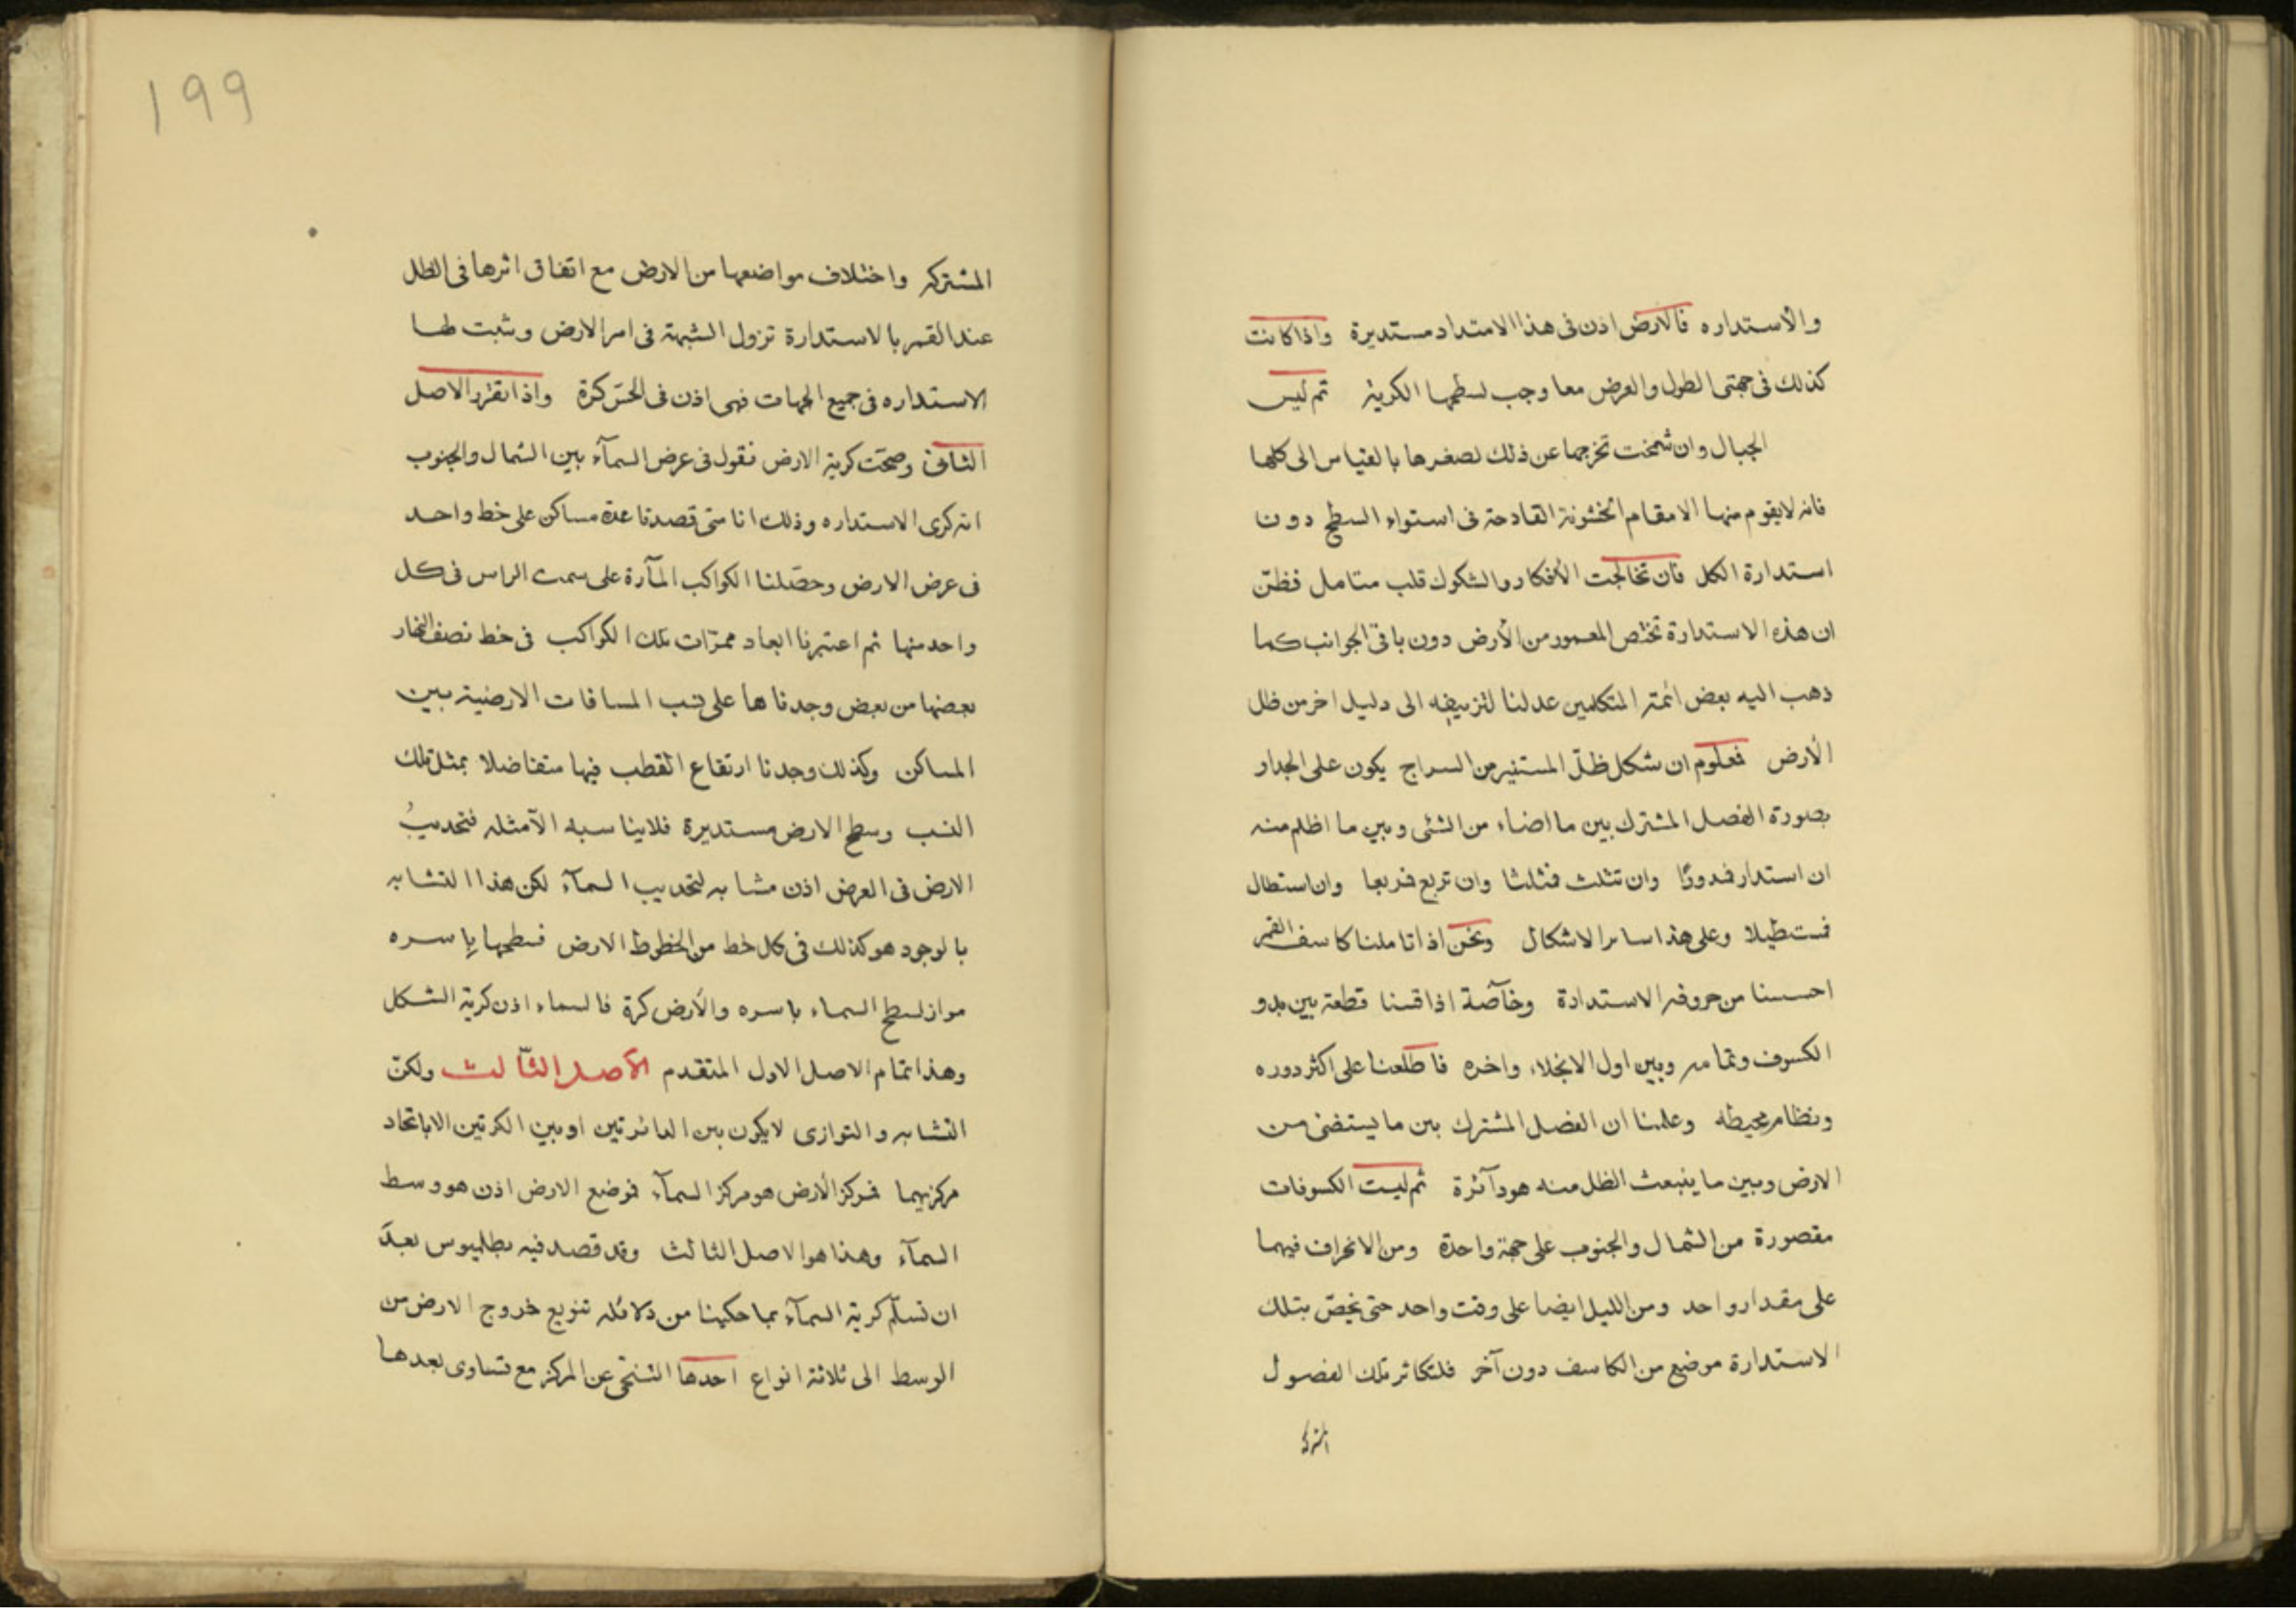 والاستداره فالارض اذن فى هذا الامتداد مستديرة واذا كانت
كذلك فى جهتى الطول والعرض معا وجب لسطحها الكرية ثم ليس
الجبال وان شمخت تخرجها عن ذلك لصغرها بالقياس الى كلها
فانه لا يقوم منها الا مقام الخشونة القادحة فى استواء السطح دون
استدارة الكل فان تخالجت الأفكار والشكوك قلب متامل فظنّ
ان هذه الاستدارة تختص المعمور من الأرض دون باقى الجوانب كما
ذهب اليه بعض ائمة المتكلمين عدلنا لتزييفه الى دليل اخر من ظل
الأرض فمعلوم ان شكل ظلّ المستنير من السراج يكون على الجدار
بصورة الفصل المشترك بين ما اضاء من الشئى وبين ما اظلم منه
ان استدار فدورًا وان تثلث فثلثا وان تربع فربعا وان استطال
فستطيلا وعلى هذا ساير الاشكال ونحن اذا تاملنا كاسف القمر
احسسنا من حروفه الاستدادة وخآصة اذا قسنا قطعة بين بدو
الكسوف وتمامه وبين اول الانجلاء واخره فاطلعنا على اكثر دوره
ونظام محيطه وعلمنا ان الفصل المشترك بين ما يستضئ من
الارض وبين ما ينبعث الظل منه هو دآئرة ثم ليست الكسوفات
مقصورة من الشمال والجنوب على جهة واحدة ومن الانحراف فيهما
على مقدار واحد ومن الليل ايضا على وقت واحد حتى يختص بتلك
الاستدارة موضع من الكاسف دون آخر فلتكاثر تلك الفصول
المشتركه
199
المشتركه واختلاف مواضعها من الارض مع اتفاق اثرها فى الظل
عند القمر بالاستدارة تزول الشبهة فى امر الارض ويثبت لها
الاستداره فى جميع الجهات فهى اذن فى الحسّ كرة واذا تقرّر الاصل
الثانى وصحّت كرية الارض فنقول فى عرض السمآء بين الشمال والجنوب
انه كرى الاستداره وذلك انا متى قصدنا عدة مساكن على خط واحد
فى عرض الارض وحصّلنا الكواكب المآرة على سمت الراس فى كل
واحد منها ثم اعتبرنا ابعاد ممرّات تلك الكواكب فى خط نصف النهار
بعضها من بعض وجدناها على نسب المسافات الارضية بين
المساكن وكذلك وجدنا ارتفاع القطب فيها متفاضلا بمثل تلك
النسب وسطح الارض مستديرة فلا يناسبه الآ مثله فتحديبُ
الارض فى العرض اذن مشابه لتحديب السمآء لكن هذا التشابه
بالوجود هو كذلك فى كل خط من الخطوط الارض فسطحها باسره
مواز لسطح السماء باسره والأرض كرة فالسماء اذن كرية الشكل
وهذا تمام الاصل الاول المتقدم الأصل الثّالث ولكنّ
التشابه والتوازى لا يكون بين الدائرتين او بين الكرتين الا باتحاد
مركزيهما فمركز الأرض هو مركز السمآء فوضع الارض اذن هو وسط
السمآء وهذا هو الاصل الثالث وقد قصد فيه بطلميوس بعدَ
ان تسلّم كرية السمآء بما حكينا من دلائله تنويع خروج الارض من
الوسط الى ثلاثة انواع احدها التنحّى عن المركز مع تساوى بعدها